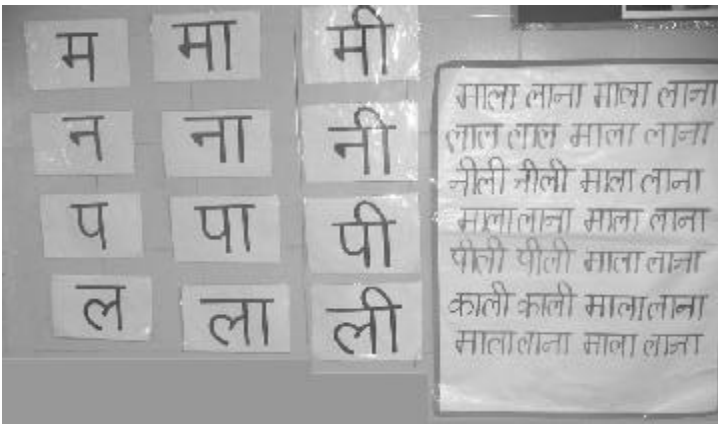 म मा मी
न ना नी
प पा पी
ल ला ली
माला लाना माला लाना
लाल लाल माला लाना
नीली नीली माला लाना
माला लाना माला लाना
पीली पीली माला लाना
काली काली माला लाना
माला लाना माला लाना